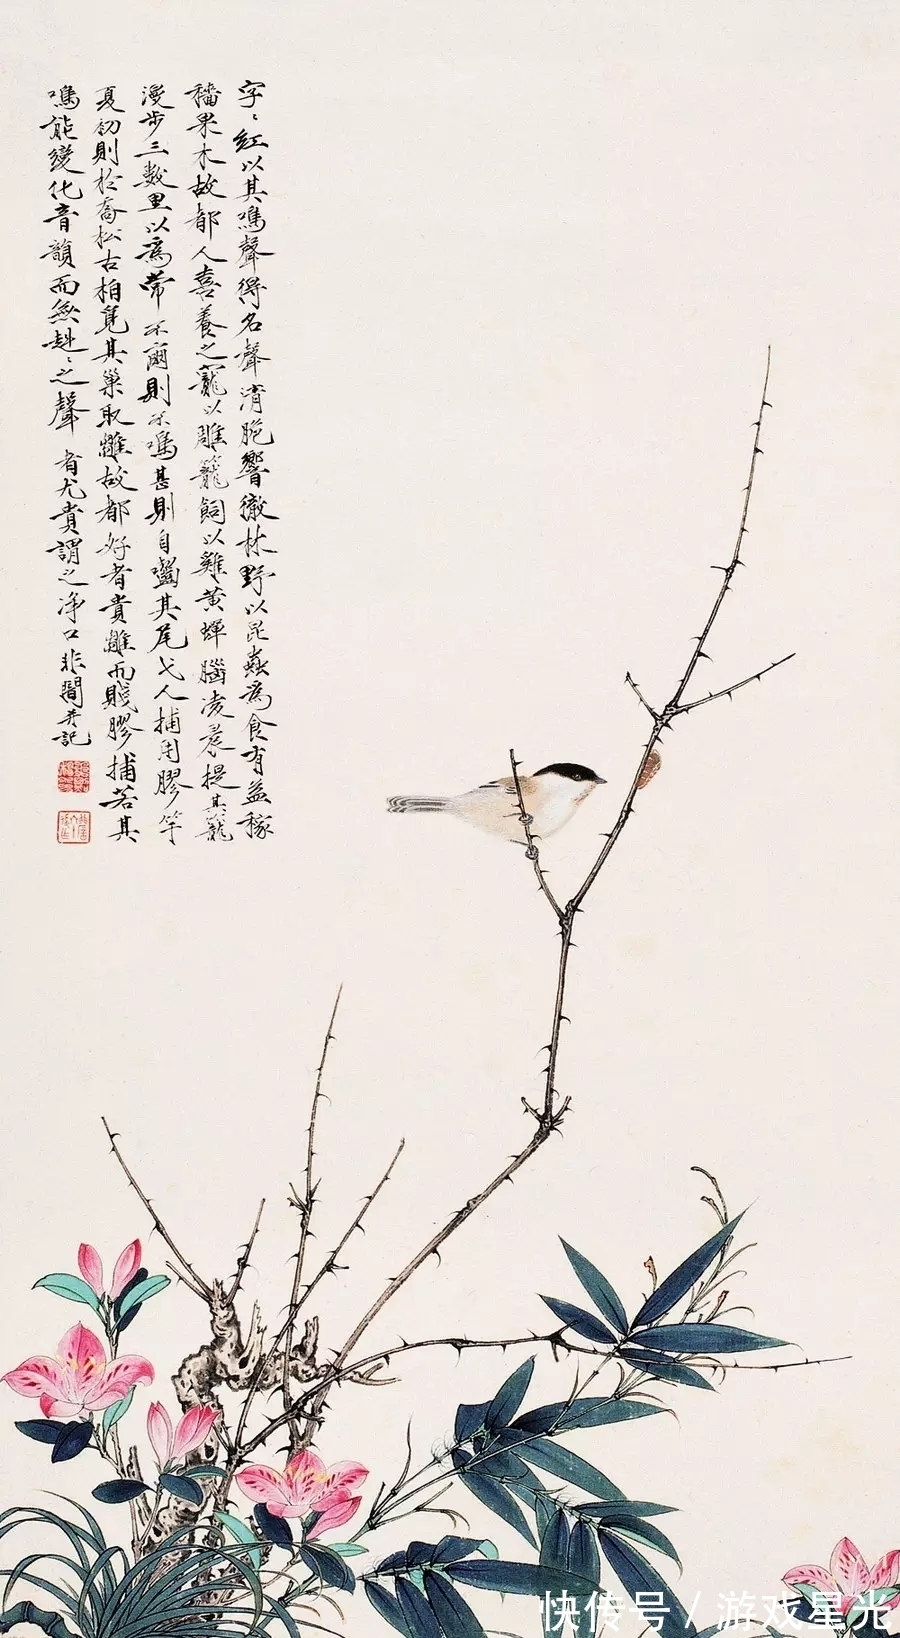 字〻紅以其鳴聲得名聲清脆響徹林野以昆蟲為食有益稼
穡果木故都人喜養之寵以雕籠飼以雞黃蟬腦凌晨提其籠
漫步三數里以為常不爾則不鳴甚則自齧其尾弋人捕用膠竿
夏初則於喬松古柏覓其巢取雛故都好者貴雛而賤膠捕若其
鳴能變化音韻而無趄〻之聲者尤貴謂之淨口非闇并記
快传号/游戏星光